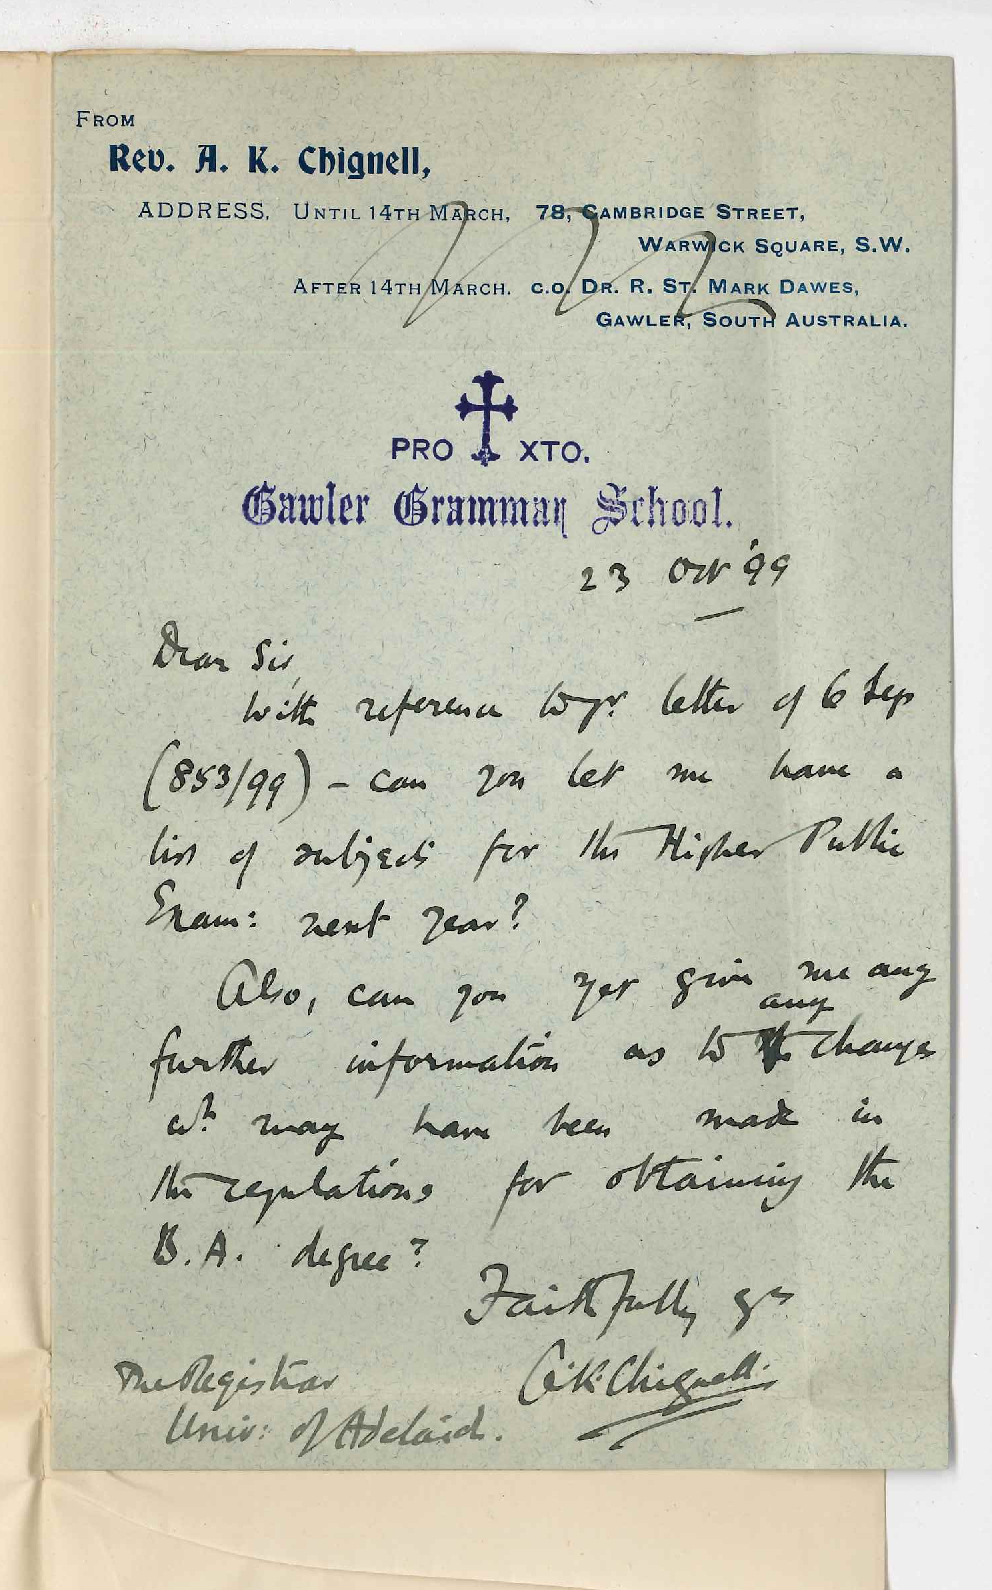 FROM
Rev. A. K. Chignell,
ADDRESS. UNTIL 14TH MARCH, 78, CAMBRIDGE STREET,
WARWICK SQUARE, S.W.
AFTER 14TH MARCH. C.O. DR. R. ST. MARK DAWES,
GAWLER, SOUTH AUSTRALIA.
PRO XTO.
Gawler Grammar School.
23 Oct '99
Dear Sir,
With reference to yr. letter of 6 Sep
(853/99) – can you let me have a
list of subjects for the Higher Public
Exam: next year?
Also, can you yet give me any
any
further information as to changes
wh. may have been made in
the regulations for obtaining the
B.A. degree?
Faithfully yrs
A.K. Chignell.
The Registrar
Univ: of Adelaide.